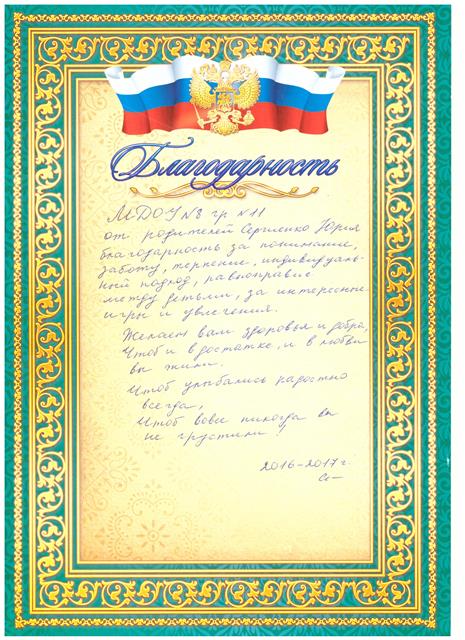 Благодарность
МДОУ №8 гр №11
от родителей Сергиенко Юрия
благодарность за понимание,
заботу, терпение, индивидуаль-
ный подход, равноправие
между детьми, за интересные
игры и увлечения.
Желаем вам здоровья и добра,
Чтоб и в достатке, и в любви
вы жили.
Чтоб улыбались радостно
всегда,
Чтоб вовек никогда вы
не грустили!
2016-2017 г.